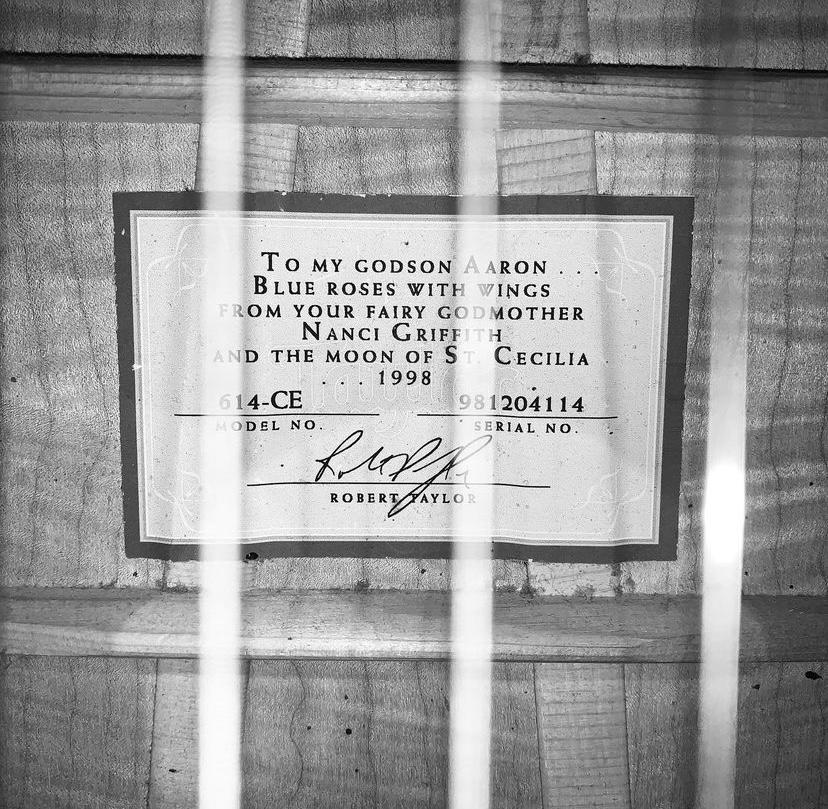 To my godson Aaron . . .
Blue roses with wings
from your fairy godmother
Nanci Griffith
and the moon of St. Cecilia
. . . 1998
614-CE 981204114
MODEL NO. SERIAL NO.
ROBERT TAYLOR